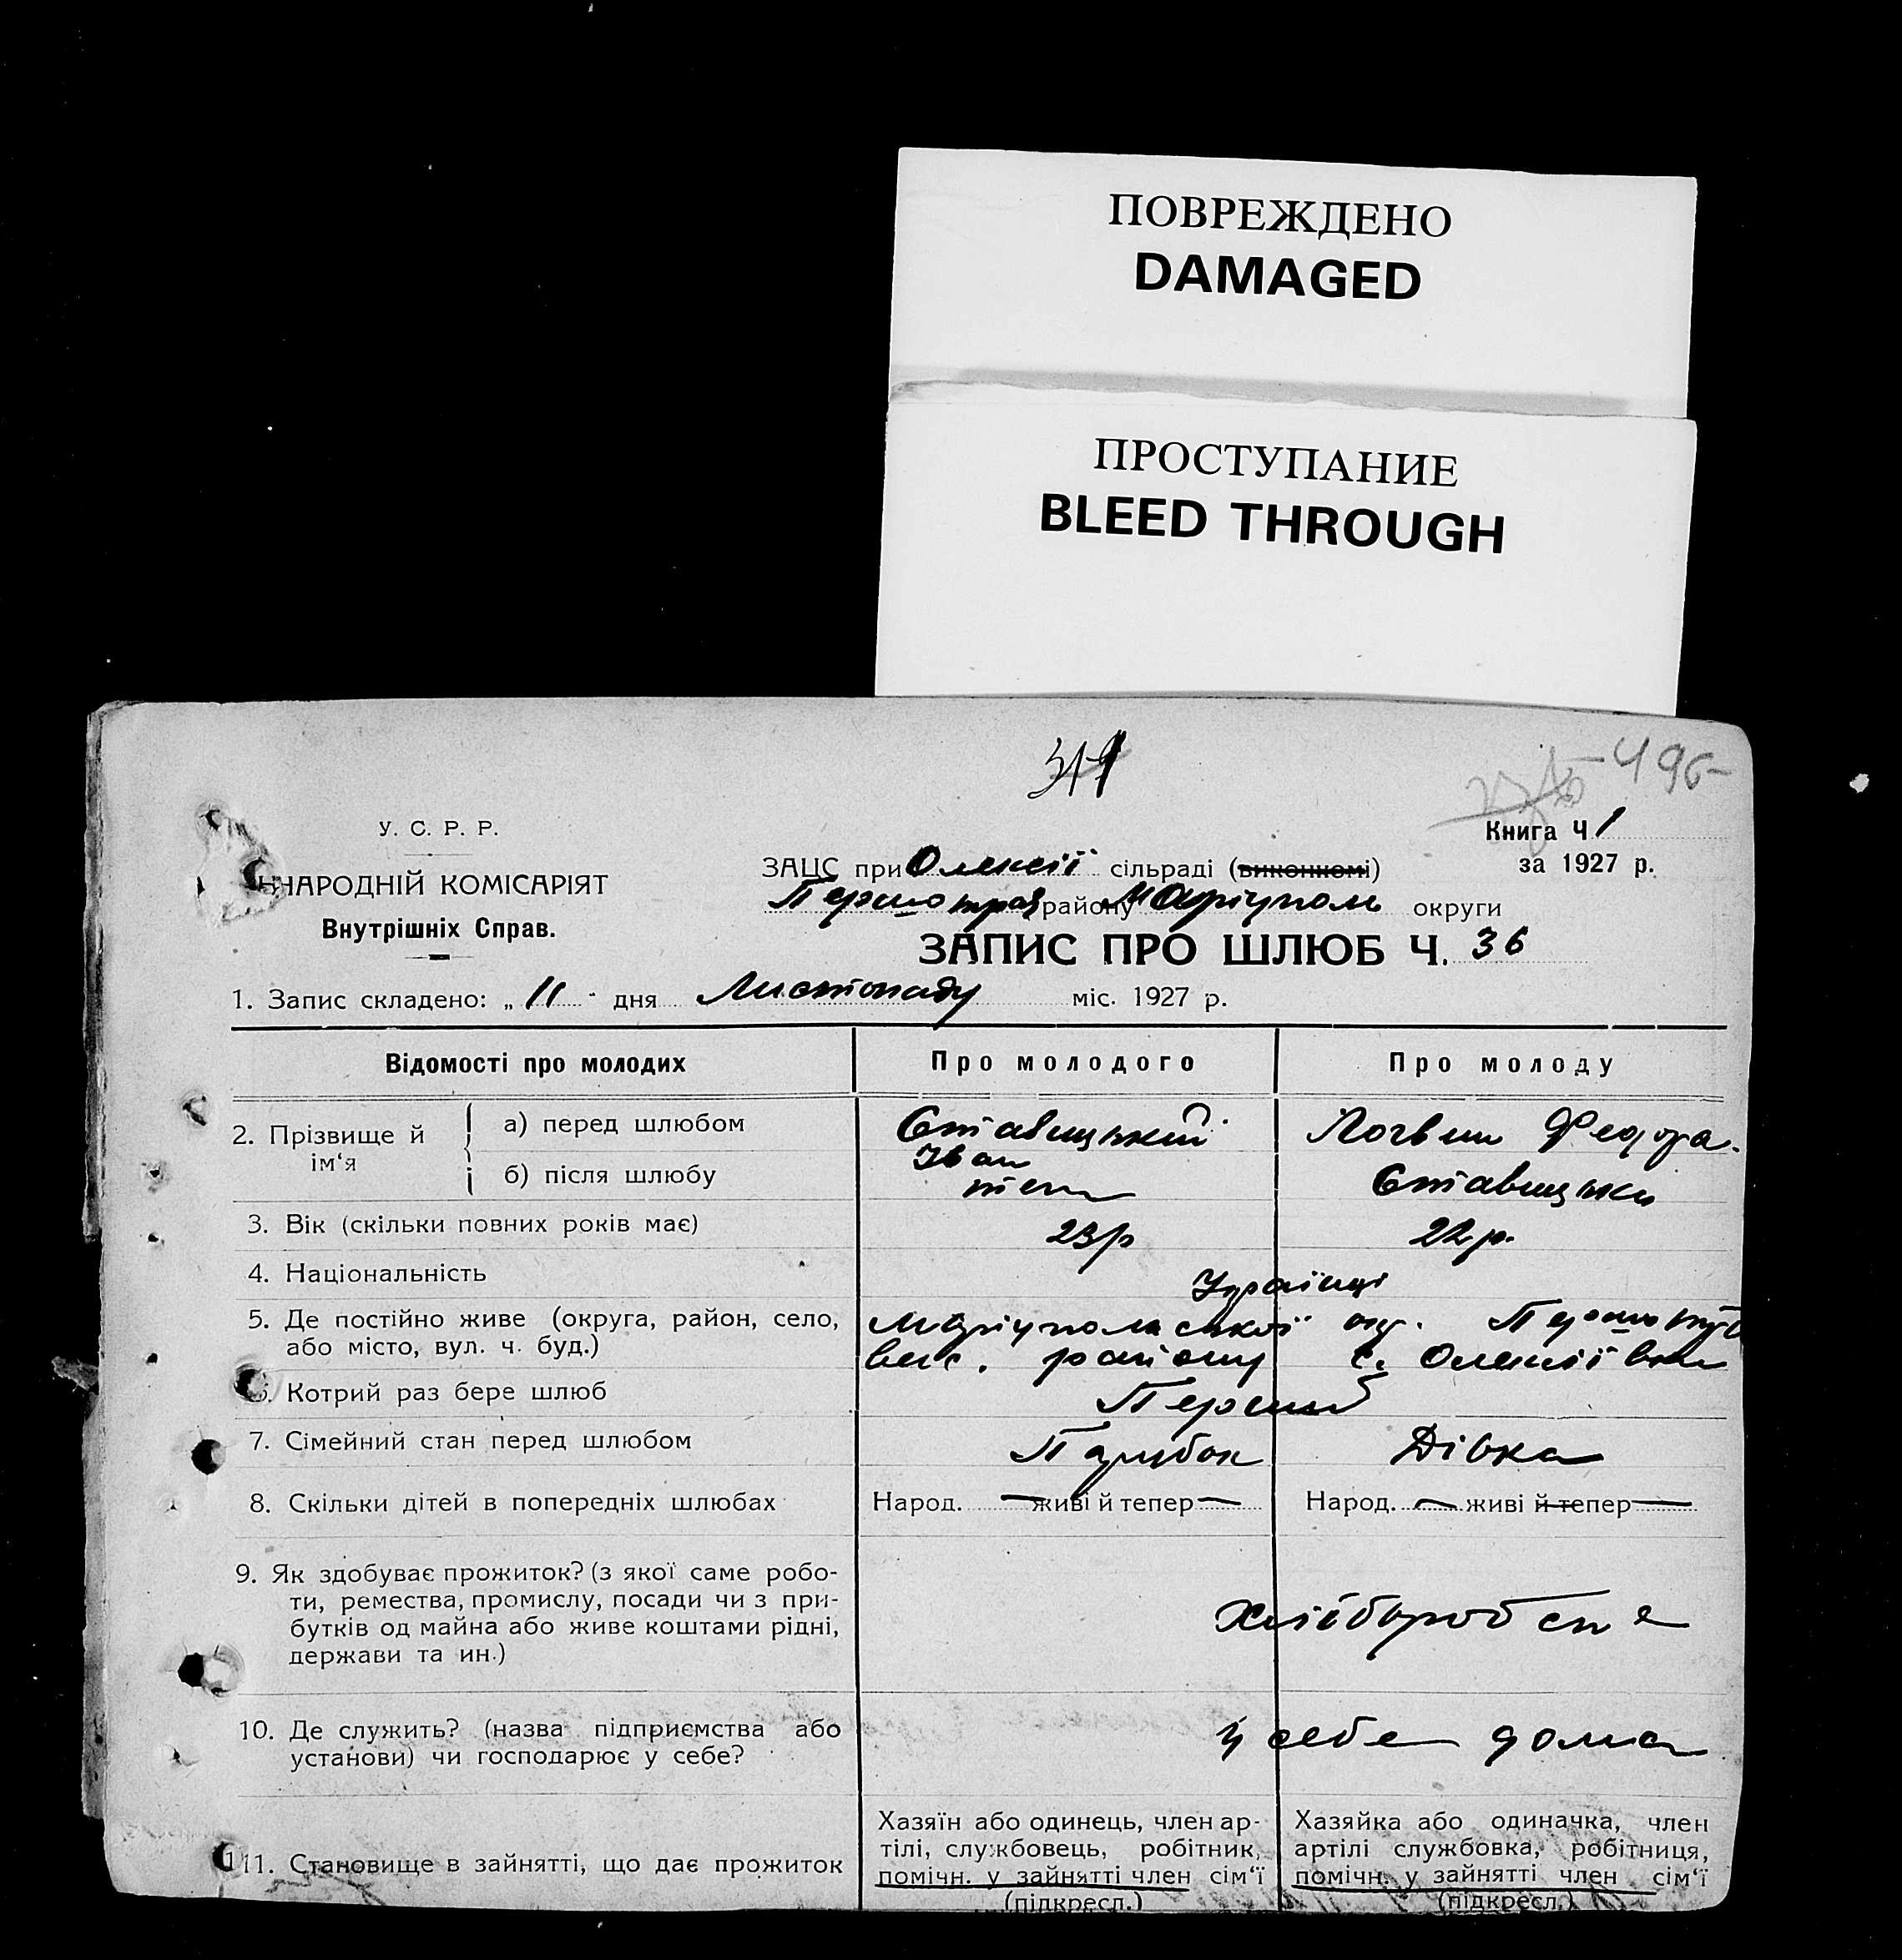 ПОВРЕЖДЕНО
DAMAGED
ПРОСТУПАНИЕ
BLEED THROUGH
496
У. С. Р. Р.
Книга Ч 1
за 1927 р.
НАРОДНІЙ КОМІСАРІЯТ
Внутрішніх Справ.
ЗАЦС при Олексії сільраді (виконкомі)
Першотрав району Маріуполь округи
ЗАПИС ПРО ШЛЮБ Ч. 36
1. Запис складено: „ 11 " дня Листопаду міс. 1927 р.
Відомості про молодих Про молодого Про молоду
2. Прізвище й ім‘я
а) перед шлюбом Ставицький Іван Логвин Федора.
б) після шлюбу теж Ставицька
3. Вік (скільки повних років має) 23р 22 р.
4. Національність Українці
5. Де постійно живе (округа, район, село, Маріупольської окр.
або місто, вул. ч. буд.) району с. Олексіївки
6. Котрий раз бере шлюб Перший
7. Сімейний стан перед шлюбом Парубок Дівка
8. Скільки дітей в попередніх шлюбах Народ. — живі й тепер — Народ. — живі й тепер —
9. Як здобуває прожиток? (з якої саме робо-
ти, ремества, промислу, посади чи з при-
бутків од майна або живе коштами рідні,
держави та ин.)
Хліборобств
10. Де служить? (назва підприємства або
установи) чи господарює у себе?
у себе дома
11. Становище в зайнятті, що дає прожиток
Хазяїн або одинець, член ар-
тілі, службовець, робітник,
помічн. у зайнятті член сім‘ї
(підкресл.)
Хазяйка або одиначка, член
артілі службовка, робітниця,
помічн. у зайнятті член сім‘ї
(підкресл.)